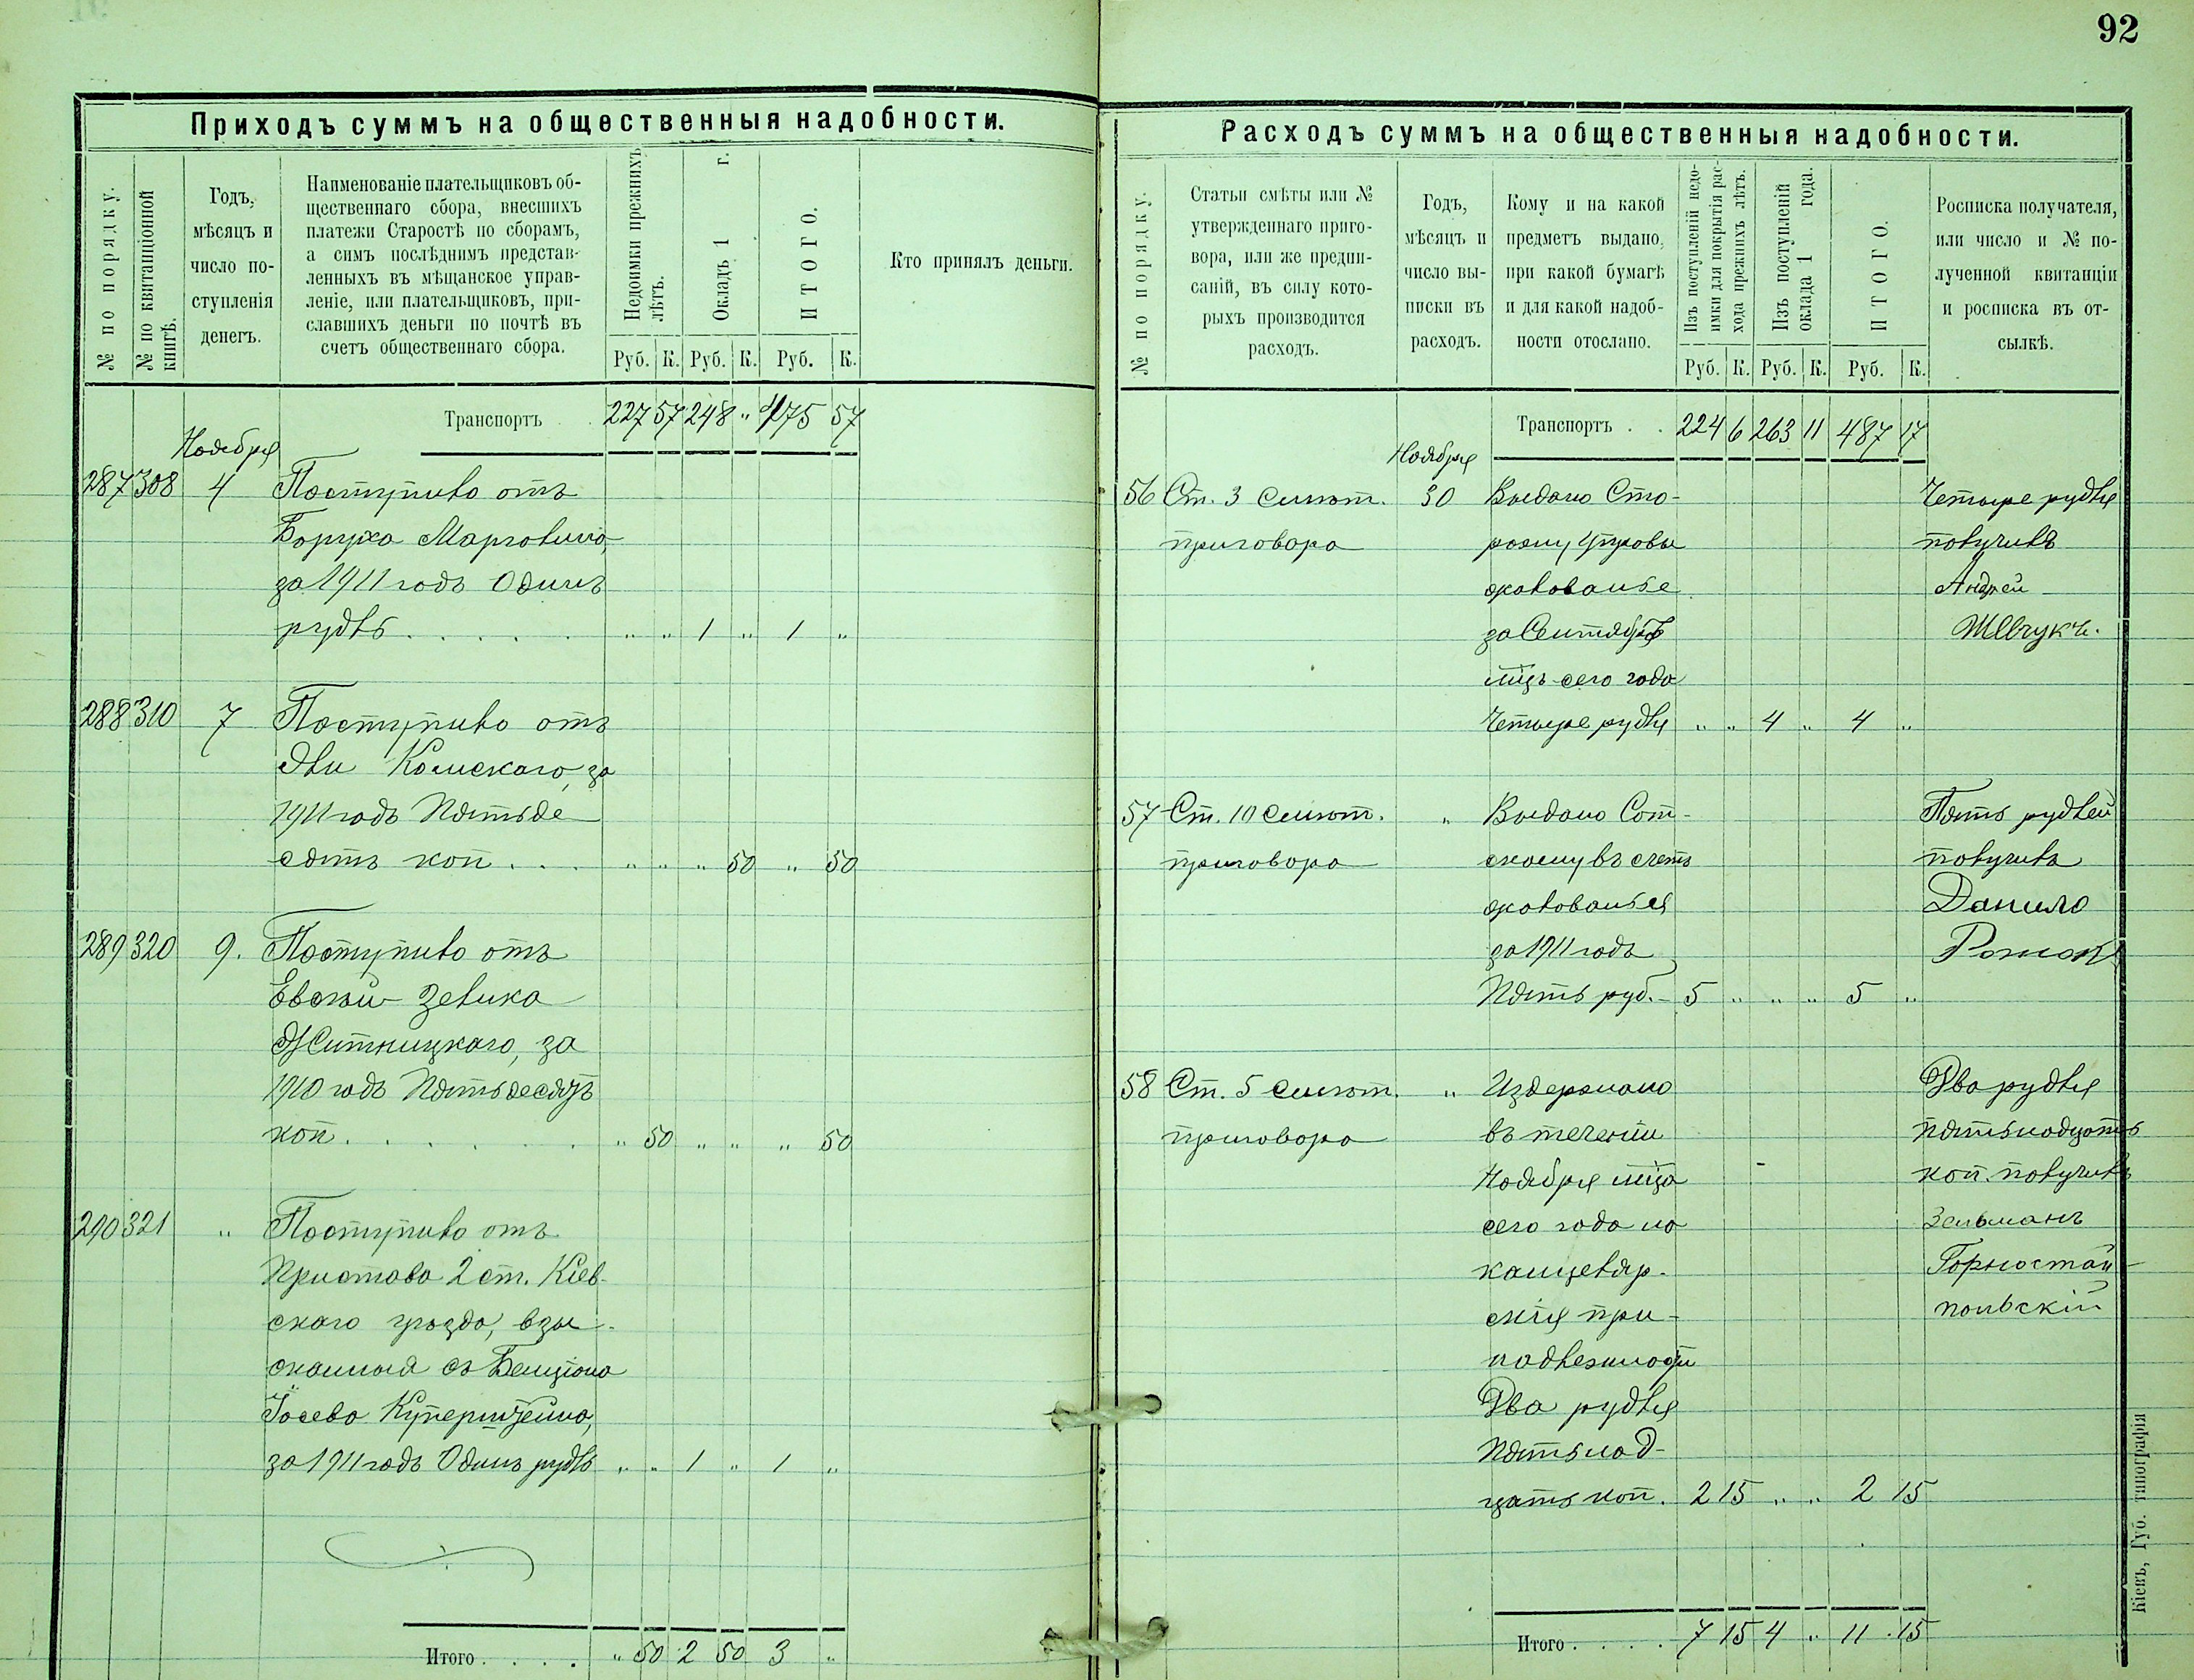 92
Приходъ суммъ на общественныя надобности.
№ по порядку.
№ по квитанціонной книгѣ.
Годъ, мѣсяцъ и число по-
ступленія денегъ.
Наименованіе плательщиковъ об-
щественнаго сбора, внесшихъ
платежи Старостѣ по сборамъ,
а симъ послѣднимъ представ-
ленныхъ въ мѣщанское управ-
леніе, или плательщиковъ, при-
славшихъ деньги по почтѣ въ
счетъ общественнаго сбора.
Недоимки прежнихъ лѣтъ.
Окладъ 1 г.
ИТОГО.
Кто принялъ деньги.
Руб. К. Руб. К. Руб. К.
Транспортъ 227 57 248 " 475 57
Ноября
287 308 4 Поступило отъ
Боруха Марголина,
за 1911 годъ Одинъ
рубль . . . . . " " 1 " 1 "
288 310 7 Поступило отъ
Комскаго, за
1911 годъ Пятьде
сятъ коп . . . " " " 50 " 50
289 320 9. Поступило отъ
Евсѣй-Зелика
Житницкаго, за
1910 годъ Пятьдесятъ
коп . . . . . " 50 " " " 50
290 321 " Поступило отъ
Пристава 2 ст. Кіев-
скаго уѣзда, взы-
сканныя съ Бенціона
Іосева Куперштейна,
за 1911 годъ Одинъ рубль " " 1 " 1 "
Итого . . . . " 50 2 50 3 "
Расходъ суммъ на общественныя надобности.
№ по порядку.
Статьи смѣты или №
утвержденнаго приго-
вора, или же предпи-
саній, въ силу кото-
рыхъ производится
расходъ.
Годъ,
мѣсяцъ и
число вы-
писки въ
расходъ.
Кому и на какой
предметъ выдано,
при какой бумагѣ
и для какой надоб-
ности отослано.
Изъ поступленій недо-
имки для покрытія рас-
хода прежнихъ лѣтъ.
Изъ поступленій
оклада 1 года.
ИТОГО.
Росписка получателя,
или число и № по-
лученной квитанціи
и росписка въ от-
сылкѣ.
Руб. К. Руб. К. Руб. К.
Транспортъ . . 224 6 263 11 487 17
Ноября
56 Ст. 3 смѣт. 30 Выдано Сто- Четыре рубля
приговора рожу Управы получилъ
жалованье Андрей
за Сентябрь Шевчукъ.
мцъ сего года
Четыре рубля " " 4 " 4 "
57 Ст. 10 смѣт. " Выдано Сот- Пять рублей
приговора скому въ счетъ получилъ
жалованья Данило
за 1911 годъ
Пять руб. - 5 " " " 5 "
58 Ст. 5 смѣт. " Издержано Два рубля
приговора въ теченіи пятьнадцать
Ноября мца коп. получилъ
сего года на Зельманъ
канцеляр- Горностай-
скія при- польскій
надлежности
Два рубля
Пятьнад-
цать коп. 2 15 " " 2 15
Итого . . . . 7 15 4 " 11 15
Кіевъ, Губ. типографія